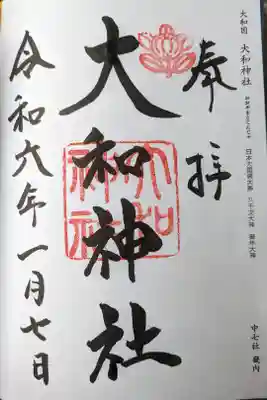 大和国 大和神社
日本大国魂大神 八千戈大神 御年大神
中七社 畿内
奉拝
大和神社
大和神社
令和六年一月七日